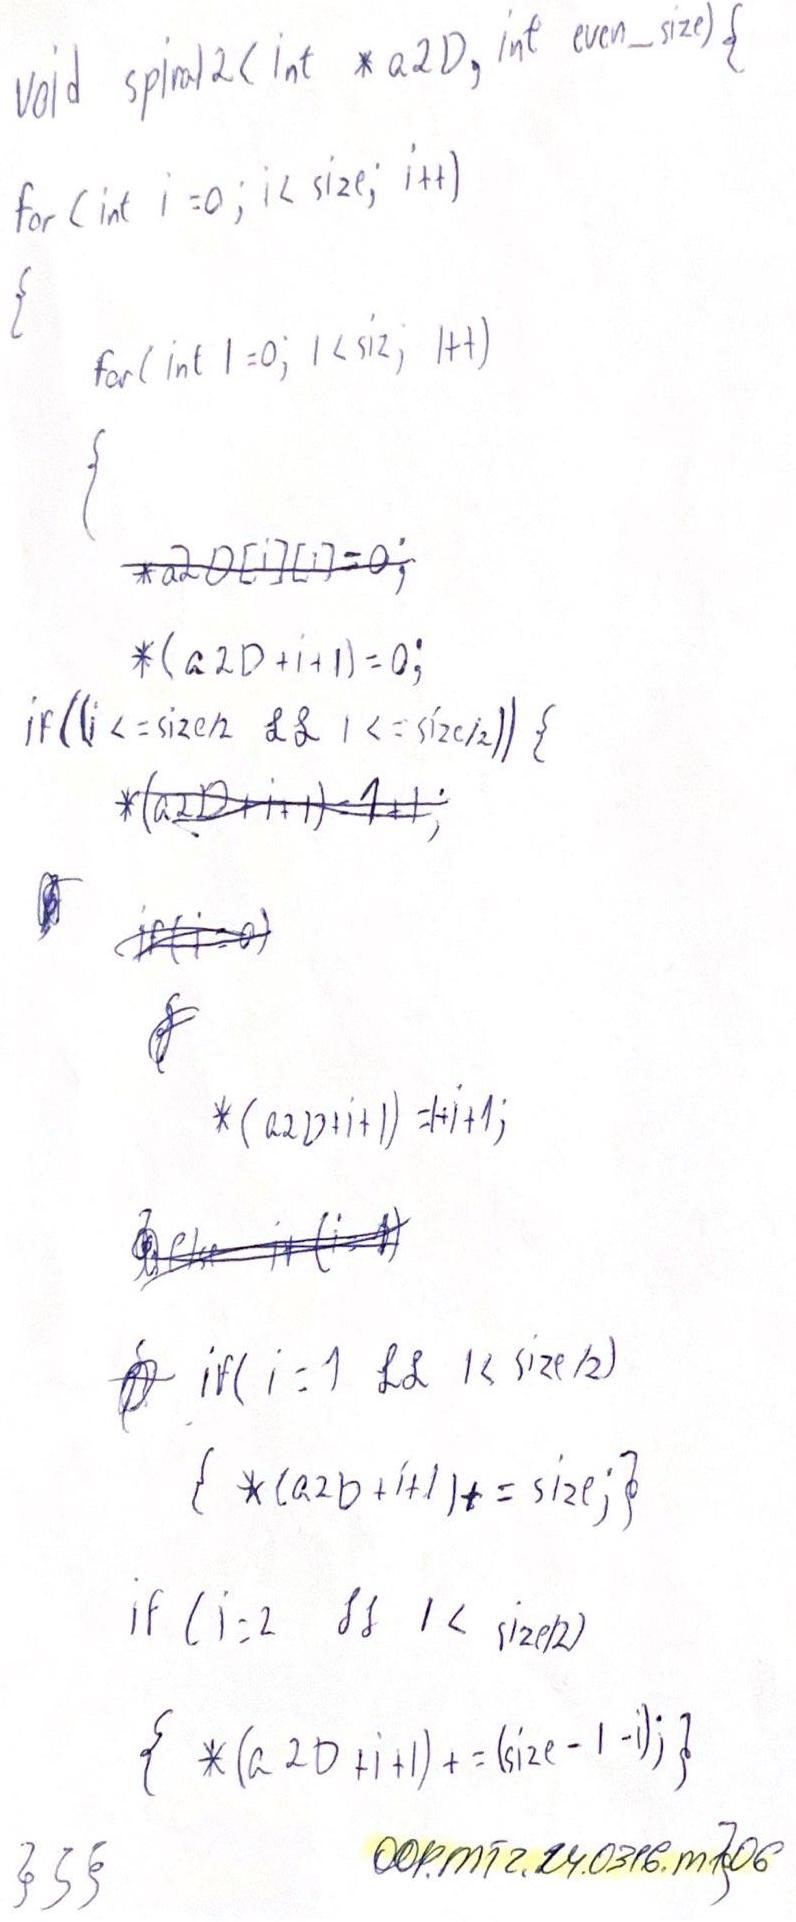 void spiral2(int *a2D, int even_size){
for (int i=0; i< size; i++)
{
for(int l=0; l<siz; l++)
{
*a2D[i][i]=0;
*(a2D+i+l)=0;
if((i<=size/2 && l<=size/2)){
*(a2D+i+l)=1+l;
if(i=0)
{
*(a2D+i+l)=l+i+1;
}else if(i=1)
if(i=1 && l< size/2)
{ *(a2D+i+l)+=size;}
if (i=2 && l< size/2)
{ *(a2D+i+l)+=(size-1-i);}
}}}
}